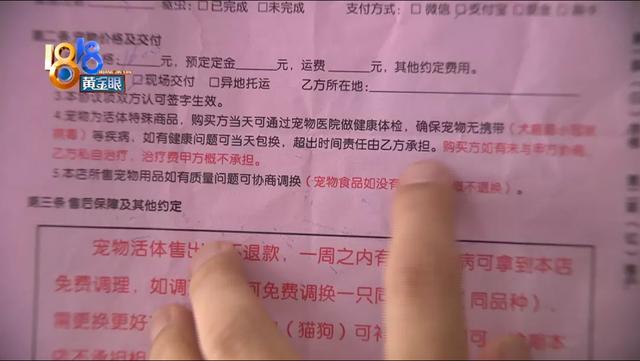 驱虫：□已完成 □未完成 支付方式：□微信 □支付宝
第二条宠物价格及交付
1818
黄金眼
元，预定定金 元，运费 元，其他约定费用。
□现场交付 □异地托运 乙方所在地：
3.本协议须双方认可签字生效。
4.宠物为活体特殊商品，购买方当天可通过宠物医院做健康体检，确保宠物无携带（犬瘟细小冠状
病毒）等疾病，如有健康问题可当天包换，超出时间责任由乙方承担。购买方如有未与甲方协商，
乙方私自治疗，治疗费甲方概不承担。
5.本店所售宠物用品如有质量问题可协商调换（宠物食品如没有 概不退换）。
第三条 售后保障及其他约定
宠物活体售出 不退款，一周之内有 病可拿到本店
免费调理，如调 可免费调换一只同 同品种）。
需更换更好 （猫狗）可补
店不承担